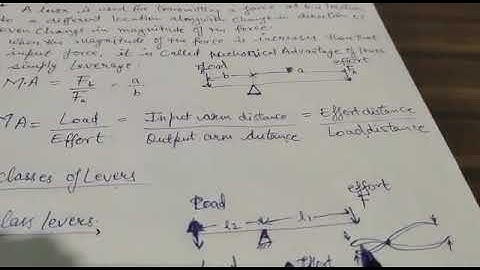 A lever is used for transmitting a force at one location
to a different location alongwith change in direction or
even change in magnitude of the force.
when the magnitude of the force is increased than that
input force, it is called Mechanical Advantage of lever
simply leverage.
Load effort
b a
M.A = F₁/F₂ = a/b
MA = Load/Effort = Input arm distance/Output arm distance = Effort distance/Load distance
Classes of Levers
class levers,
Load effort
F
l₂ l₁
Load Effort